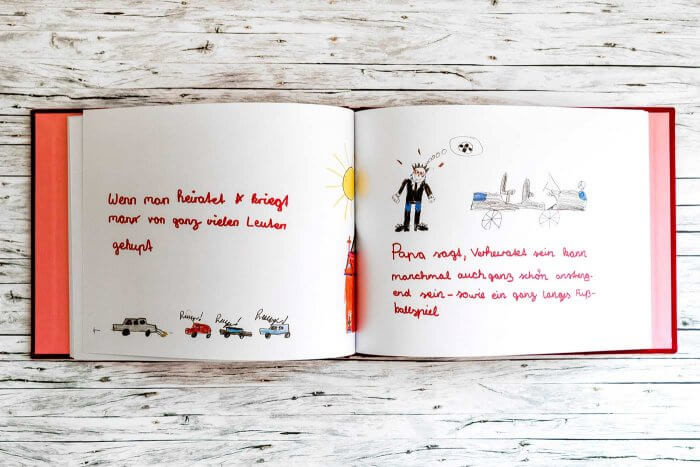 Wenn man heiratet kriegt
man von ganz vielen Leuten
gehupt
Papa sagt, Verheiratet sein kann
manchmal auch ganz schön anstreng-
end sein - sowie ein ganz langes Fuß-
ballspiel